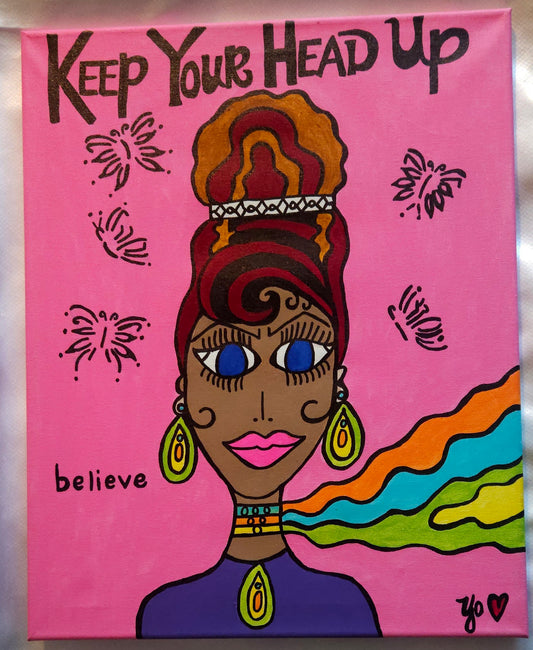 KEEP YOUR HEAD UP
believe
Yo